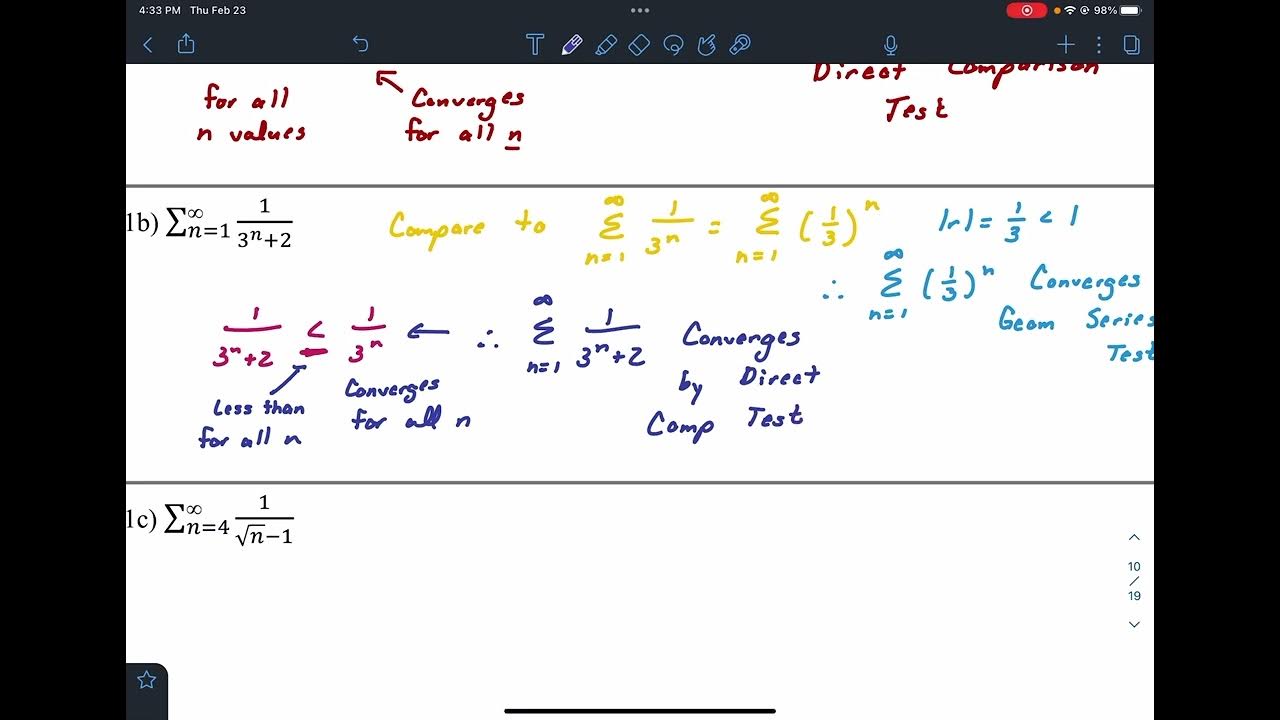 4:33 PM Thu Feb 23
98%
Direct Comparison
Test
for all
n values
Converges
for all n
1b) ∑_{n=1}^{∞} 1/(3^n+2)
Compare to ∑_{n=1}^{∞} 1/3^n = ∑_{n=1}^{∞} (1/3)^n
|r| = 1/3 < 1
∴ ∑_{n=1}^{∞} (1/3)^n Converges
Geom Series
Test
1/(3^n+2) ≤ 1/3^n ← ∴ ∑_{n=1}^{∞} 1/(3^n+2) Converges
by Direct
Comp Test
Less than
for all n
Converges
for all n
1c) ∑_{n=4}^{∞} 1/(√n−1)
10
/
19